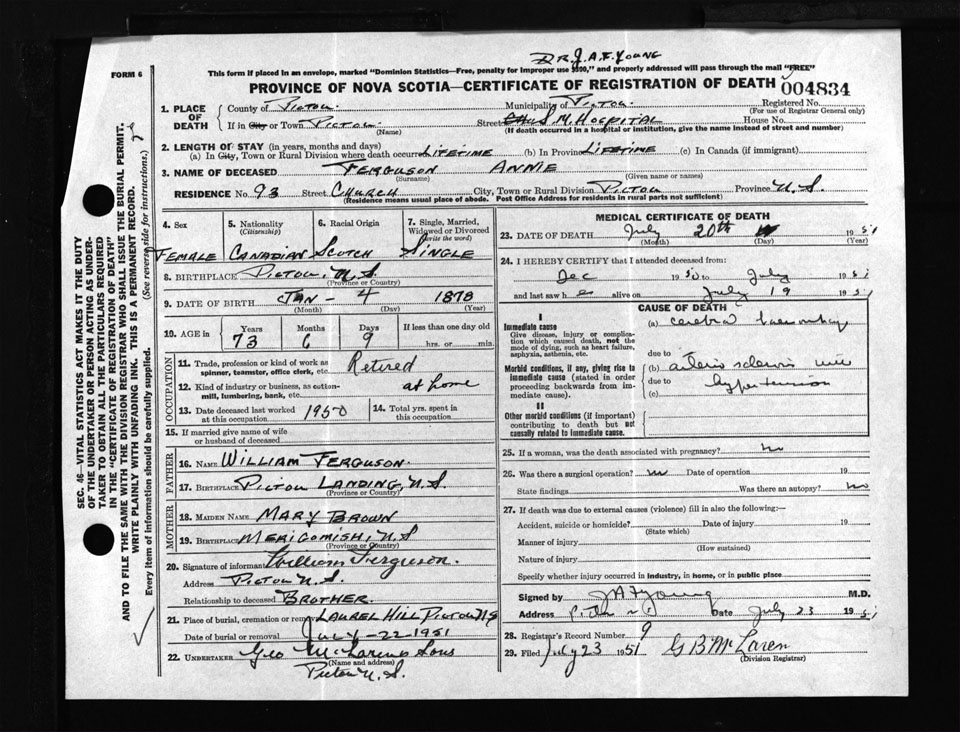 DR. J. A. F. YOUNG
FORM 6
This form if placed in an envelope, marked "Dominion Statistics—Free, penalty for improper use $300," and properly addressed will pass through the mail "FREE"
PROVINCE OF NOVA SCOTIA—CERTIFICATE OF REGISTRATION OF DEATH
004834
1. PLACE OF DEATH
County of PICTOU. Municipality of PICTOU. Registered No.
(For use of Registrar General only)
If in City or Town PICTOU Street S M. HOSPITAL House No.
(Name) (If death occurred in a hospital or institution, give the name instead of street and number)
2. LENGTH OF STAY (in years, months and days)
(a) In City, Town or Rural Division where death occurred LIFETIME (b) In Province LIFETIME (c) In Canada (if immigrant)
3. NAME OF DECEASED FERGUSON ANNIE
(Surname) (Given name or names)
RESIDENCE No. 93 Street CHURCH City, Town or Rural Division PICTOU Province N. S.
(Residence means usual place of abode. Post Office Address for residents in rural parts not sufficient)
4. Sex 5. Nationality (Citizenship) 6. Racial Origin 7. Single, Married, Widowed or Divorced (write the word)
FEMALE CANADIAN SCOTCH SINGLE
8. BIRTHPLACE PICTOU, N. S.
(Province or Country)
9. DATE OF BIRTH JAN - 4 1878
(Month) (Day) (Year)
10. AGE in Years Months Days If less than one day old
73 6 9 hrs. or min.
OCCUPATION
11. Trade, profession or kind of work as spinner, teamster, office clerk, etc. Retired
12. Kind of industry or business, as cotton-mill, lumbering, bank, etc. at home
13. Date deceased last worked at this occupation 1950 14. Total yrs. spent in this occupation
15. If married give name of wife or husband of deceased
FATHER
16. NAME WILLIAM FERGUSON.
17. BIRTHPLACE PICTOU LANDING, N. S.
(Province or Country)
MOTHER
18. MAIDEN NAME MARY BROWN
19. BIRTHPLACE MERIGOMISH, N. S
(Province or Country)
20. Signature of informant William Ferguson.
Address PICTOU N. S.
Relationship to deceased BROTHER.
21. Place of burial, cremation or removal LAUREL HILL PICTOU N S
Date of burial or removal JULY - 22 1951
22. UNDERTAKER Geo McLaren & Sons
(Name and address)
Pictou N. S.
MEDICAL CERTIFICATE OF DEATH
23. DATE OF DEATH July 20th 1951
(Month) (Day) (Year)
24. I HEREBY CERTIFY that I attended deceased from:
Dec 1950 to July 1951
and last saw h e alive on July 19 1951
CAUSE OF DEATH
I
Immediate cause
Give disease, injury or complication which caused death, not the mode of dying, such as heart failure, asphyxia, asthenia, etc.
(a) cerebral haemorrhage
due to
Morbid conditions, if any, giving rise to immediate cause (stated in order proceeding backwards from immediate cause).
(b) arterio sclerosis
due to hypertension
(c)
II
Other morbid conditions (if important) contributing to death but not causally related to immediate cause.
25. If a woman, was the death associated with pregnancy? no
26. Was there a surgical operation? no Date of operation 19
State findings Was there an autopsy? no
27. If death was due to external causes (violence) fill in also the following:—
Accident, suicide or homicide? Date of injury 19
(State which)
Manner of injury
(How sustained)
Nature of injury
Specify whether injury occurred in industry, in home, or in public place
Signed by J A F Young M.D.
Address Date July 23 1951
28. Registrar's Record Number 9
29. Filed July 23 1951 G B McLaren
(Division Registrar)
SEC. 46—VITAL STATISTICS ACT MAKES IT THE DUTY
OF THE UNDERTAKER OR PERSON ACTING AS UNDER-
TAKER TO OBTAIN ALL THE PARTICULARS REQUIRED
IN THE "CERTIFICATE OF REGISTRATION OF DEATH"
AND TO FILE THE SAME WITH THE DIVISION REGISTRAR WHO SHALL ISSUE THE BURIAL PERMIT.
WRITE PLAINLY WITH UNFADING INK. THIS IS A PERMANENT RECORD.
Every item of information should be carefully supplied. (See reverse side for instructions.)